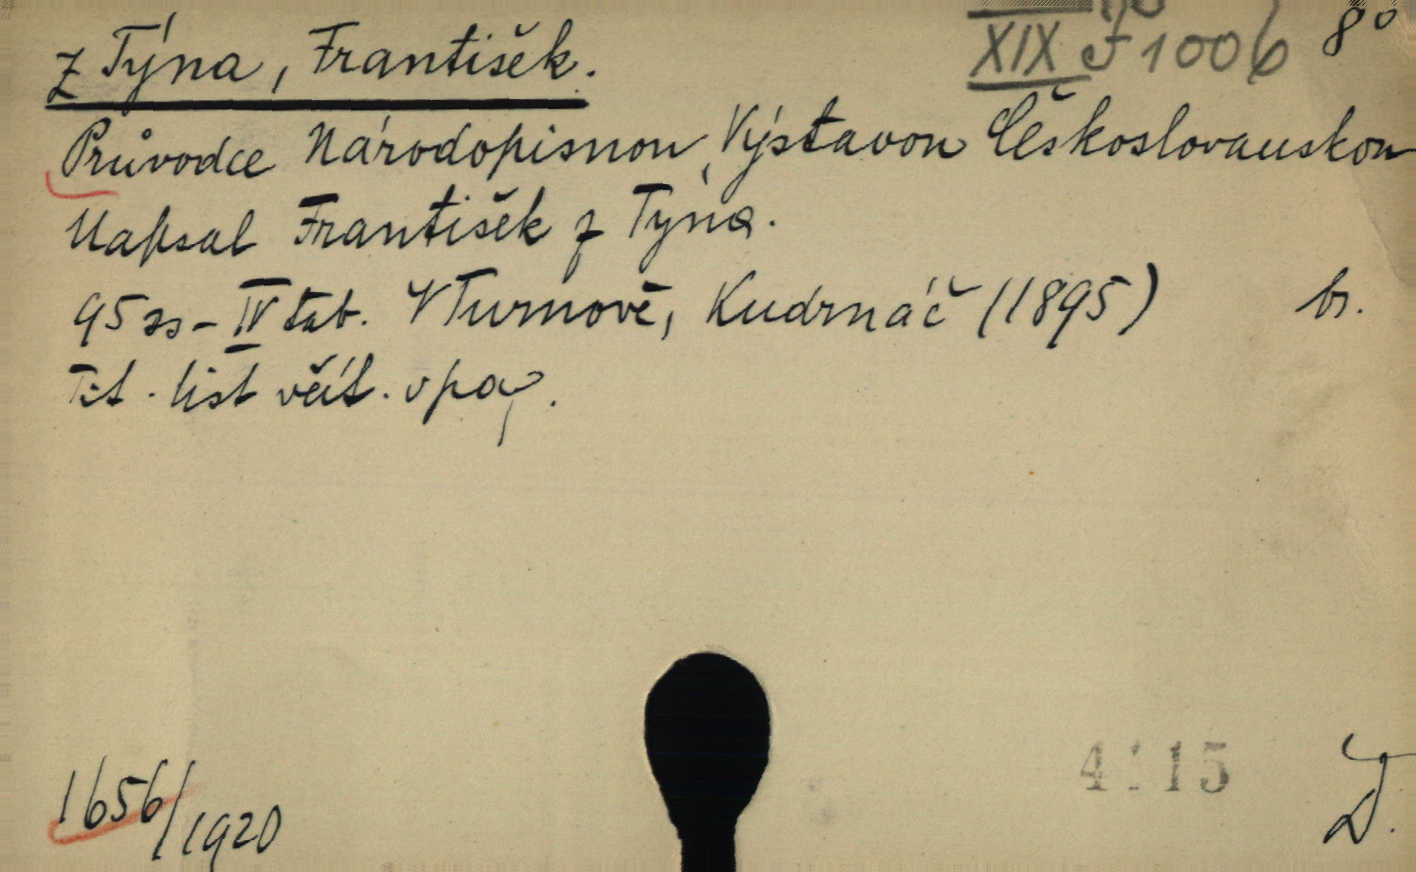 z Týna, František.
XIX F 1006
8°
Průvodce Národopisnou Výstavou Českoslovanskou
Napsal František z Týna.
95 ss - IV tab. V Turnově, Kudrnáč (1895)
br.
Tit. list věít. v pag.
1656/1920